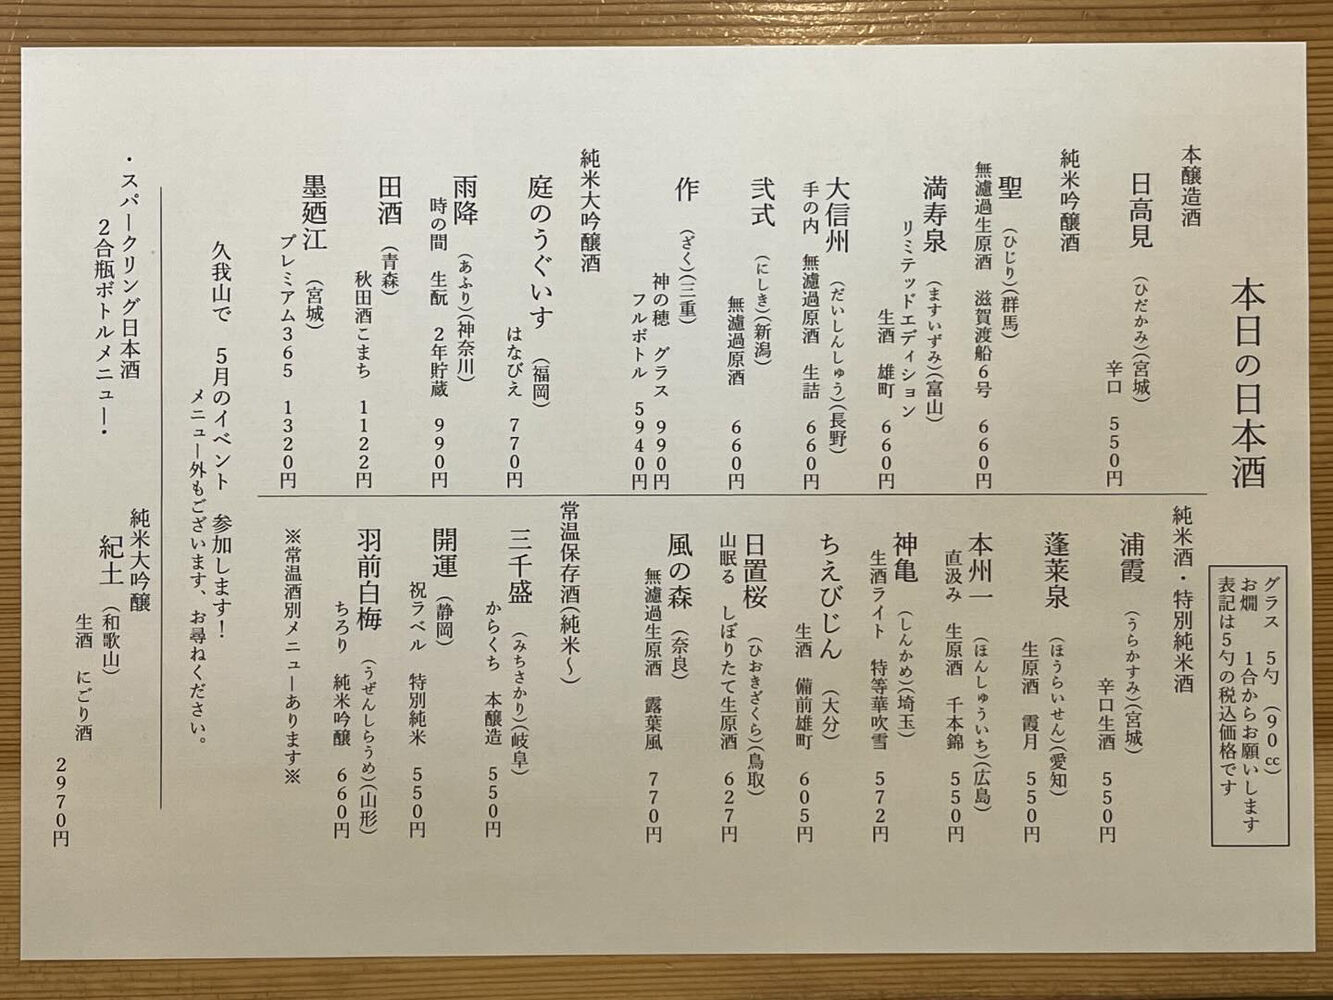 本日の日本酒
グラス　5勺　（90㏄）
お燗　1合からお願いします
表記は5勺の税込価格です
本醸造酒
日高見　（ひだかみ）（宮城）
辛口　550円
純米吟醸酒
聖　（ひじり）（群馬）
無濾過生原酒　滋賀渡船6号　660円
満寿泉　（ますいずみ）（富山）
リミテッドエディション
生酒　雄町　660円
大信州　（だいしんしゅう）（長野）
手の内　無濾過原酒　生詰　660円
弐式　（にしき）（新潟）
無濾過原酒　660円
作　（ざく）（三重）
神の穂　グラス　990円
フルボトル　5940円
純米大吟醸酒
庭のうぐいす　（福岡）
はなびえ　770円
雨降　（あふり）（神奈川）
時の間　生酛　2年貯蔵　990円
田酒　（青森）
秋田酒こまち　1122円
墨廼江　（宮城）
プレミアム365　1320円
純米酒・特別純米酒
浦霞　（うらかすみ）（宮城）
辛口生酒　550円
蓬莱泉　（ほうらいせん）（愛知）
生原酒　霞月　550円
本州一　（ほんしゅういち）（広島）
直汲み　生原酒　千本錦　550円
神亀　（しんかめ）（埼玉）
生酒ライト　特等華吹雪　572円
ちえびじん　（大分）
生酒　備前雄町　605円
日置桜　（ひおきざくら）（鳥取）
山眠る　しぼりたて生原酒　627円
風の森　（奈良）
無濾過生原酒　露葉風　770円
常温保存酒（純米～）
三千盛　（みちさかり）（岐阜）
からくち　本醸造　550円
開運　（静岡）
祝ラベル　特別純米　550円
羽前白梅　（うぜんしらうめ）（山形）
ちろり　純米吟醸　660円
※常温酒別メニューあります※
久我山で　5月のイベント　参加します！
メニュー外もございます、お尋ねください。
・スパークリング日本酒
2合瓶ボトルメニュー・
純米大吟醸
紀土　（和歌山）
生酒　にごり酒
2970円